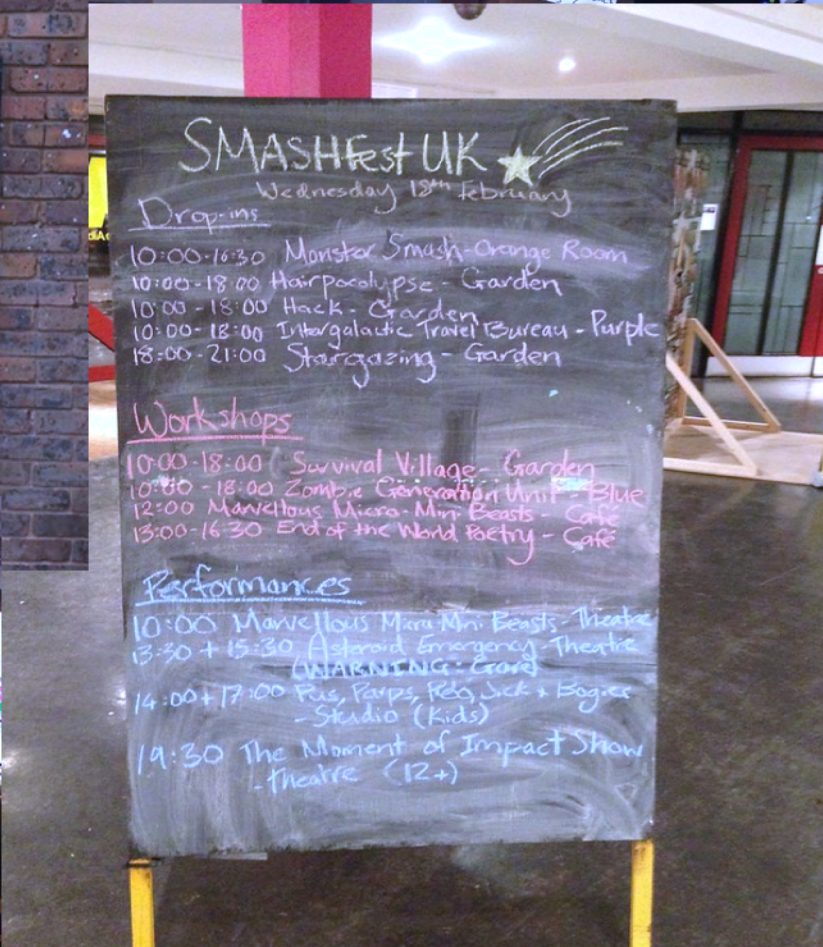 SMASHFest UK
Wednesday 18th February
Drop-ins
10:00-16:30 Monster Smash-Orange Room
10:00-18:00 Hairpocolypse - Garden
10:00 - 18:00 Hack - Garden
10:00-18:00 Intergalactic Travel Bureau - Purple
18:00-21:00 Stargazing - Garden
Workshops
10:00-18:00 Survival Village - Garden
10:00-18:00 Zombie Generation Unit - Blue
12:00 Marvellous Micro-Mini Beasts - Café
13:00-16:30 End of the World Poetry - Café
Performances
10:00 Marvellous Micro Mini Beasts - Theatre
13:30 + 15:30 Asteroid Emergency - Theatre
(WARNING: Gore)
14:00 + 17:00 Pus, Parps, Poo, Sick + Bogies
- Studio (Kids)
19:30 The Moment of Impact Show
- Theatre (12+)